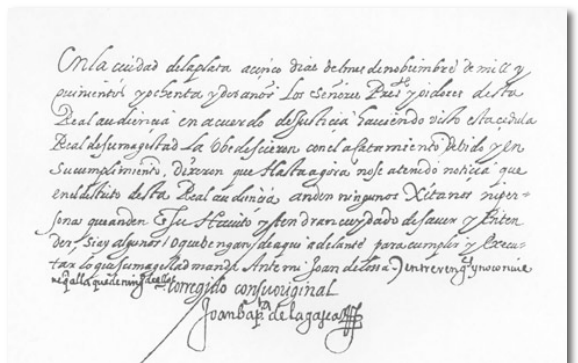 En la ciudad de la plata a cinco dias del mes de nobiembre de mill y
quinientos y ochenta y dos años los señores Pres^te y oidores desta
Real audiencia en acuerdo de Justicia haviendo visto esta cedula
Real de su magestad la obedescieron con el acatamiento debido y en
su cumplimiento, dixeron que Hasta agora no se a tenido noticia que
en el distrito desta Real audiencia anden ningunos Xitanos ni per=
sona que anden En su Havito y ternan cuydado de saver y Enten
der si ay algunos o que bengan de aqui adelante para cumplir y Execu=
tar lo que su magestad manda Ante mi Joan de Losa
corregido con su original
Joan bap^ta de la gasca